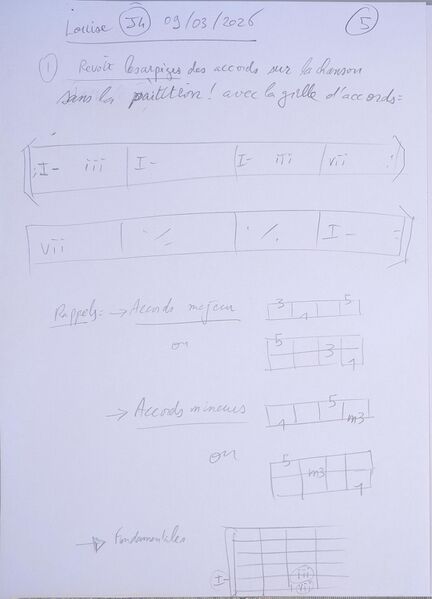 Louise J4 09/03/2026 5
1 Revoir les arpèges des accords sur la chanson
sans la partition ! avec la grille d'accords =
I- iii I- I- iii vii :
vii ٪ ٪ I- =
Rappels = → Accords majeur 3 1 5
ou 5 3 1
→ Accords mineurs 1 5 m3
ou 5 m3 1
→ Fondamentales
I iii
vii